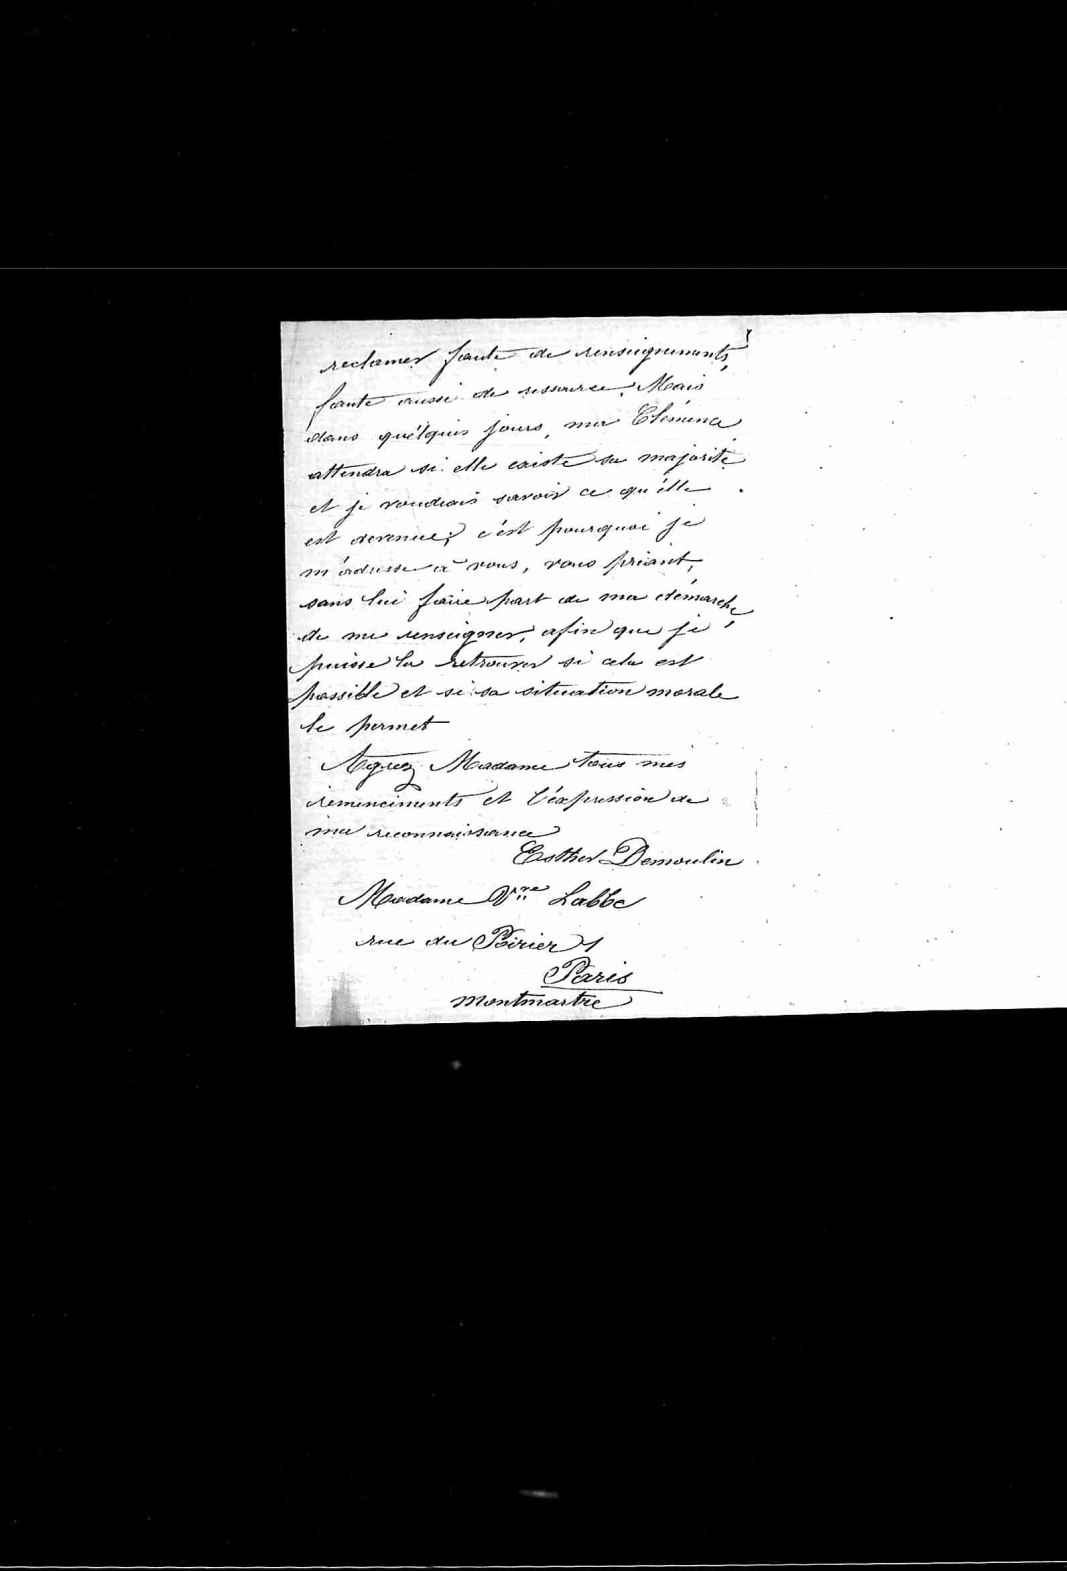 reclamer faute de renseignements,
faute aussi de ressource. Mais
dans quélquis jours, ma Clémence
attendra si elle existe sa majorité
et je voudrais savoir ce qu'elle
est devenue; c'est pourquoi je
m'adresse à vous, vous priant,
sans lui faire part de ma démarche,
de me renseigner, afin que je
puisse la retrouver si cela est
possible et si sa situation morale
le permet
Agréez Madame tous mes
remerciments et l'éxpression de
ma reconnaissance
Esther Demoulin
Madame Vve Labbe
rue du Poirier 1
Paris
Montmartre